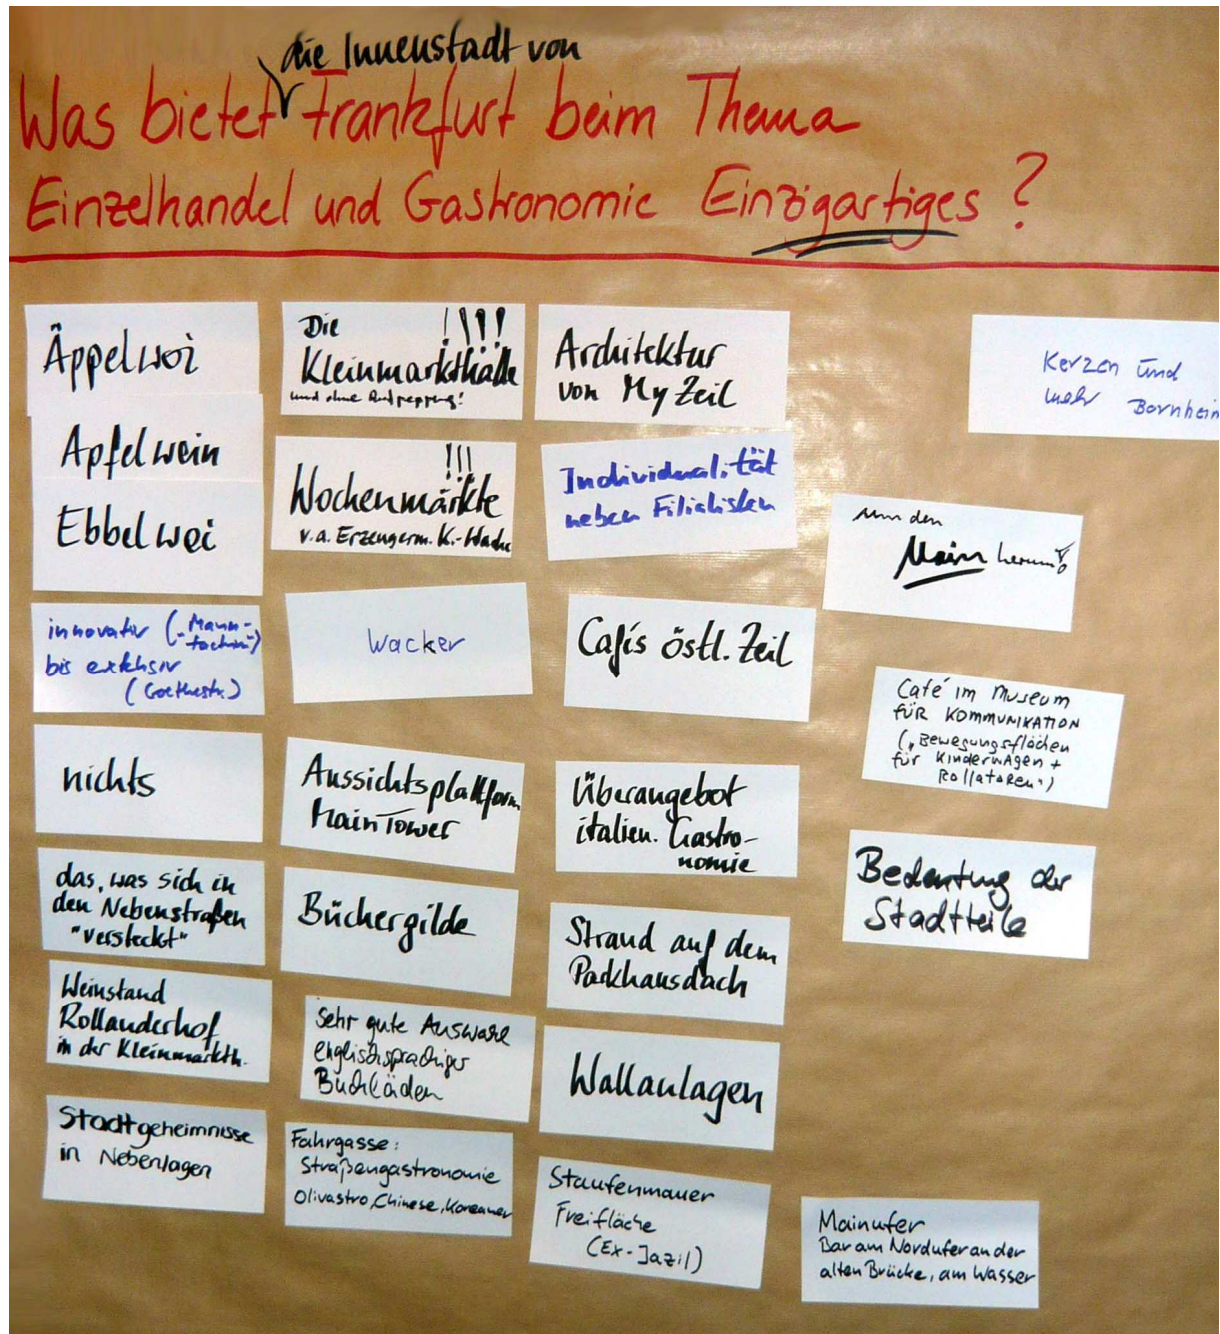 die Innenstadt von
Was bietet Frankfurt beim Thema
Einzelhandel und Gastronomie Einzigartiges?
Äppelwoi
Apfelwein
Ebbelwoi
innovativ
bis exklusiv
(Goethestr.)
nichts
das, was sich in
den Nebenstraßen
"versteckt"
Weinstand
Rollanderhof
in der Kleinmarkth.
Stadtgeheimnisse
in Nebenlagen
Die !!!!
Kleinmarkthalle
und ohne Aufpeppung!
!!!
Wochenmärkte
v.a. Erzeugerm. K.-Wache
Wacker
Aussichtsplattform
MainTower
Büchergilde
Sehr gute Auswahl
englischsprachiger
Buchläden
Fahrgasse:
Straßengastronomie
Olivastro, Chinese, Koreaner
Architektur
von My Zeil
Individualität
neben Filialisten
Cafés östl. Zeil
Überangebot
italien. Gastro-
nomie
Strand auf dem
Parkhausdach
Wallanlagen
Staufenmauer
Freifläche
(Ex-Jazil)
Kerzen und
mehr Bornheim
um den
Main herum!
Café im Museum
FÜR KOMMUNIKATION
("Bewegungsflächen
für Kinderwagen +
Rollatoren")
Bedeutung der
Stadtteile
Mainufer
Bar am Nordufer an der
alten Brücke, am Wasser